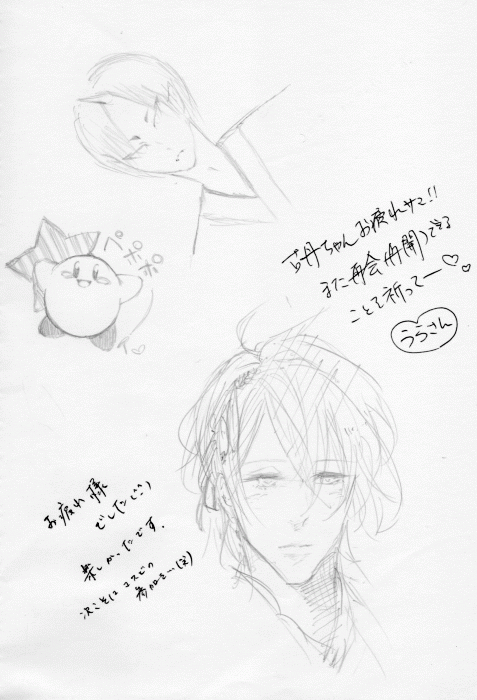 ペポポポ
イ♡
古丹ちゃん お疲れサマ!!
また再会(再開)できる
ことを祈ってー♡♡
うらさん
お疲れ様
でした
楽しかったです。
次こそは コスピの
参加を…(泣)